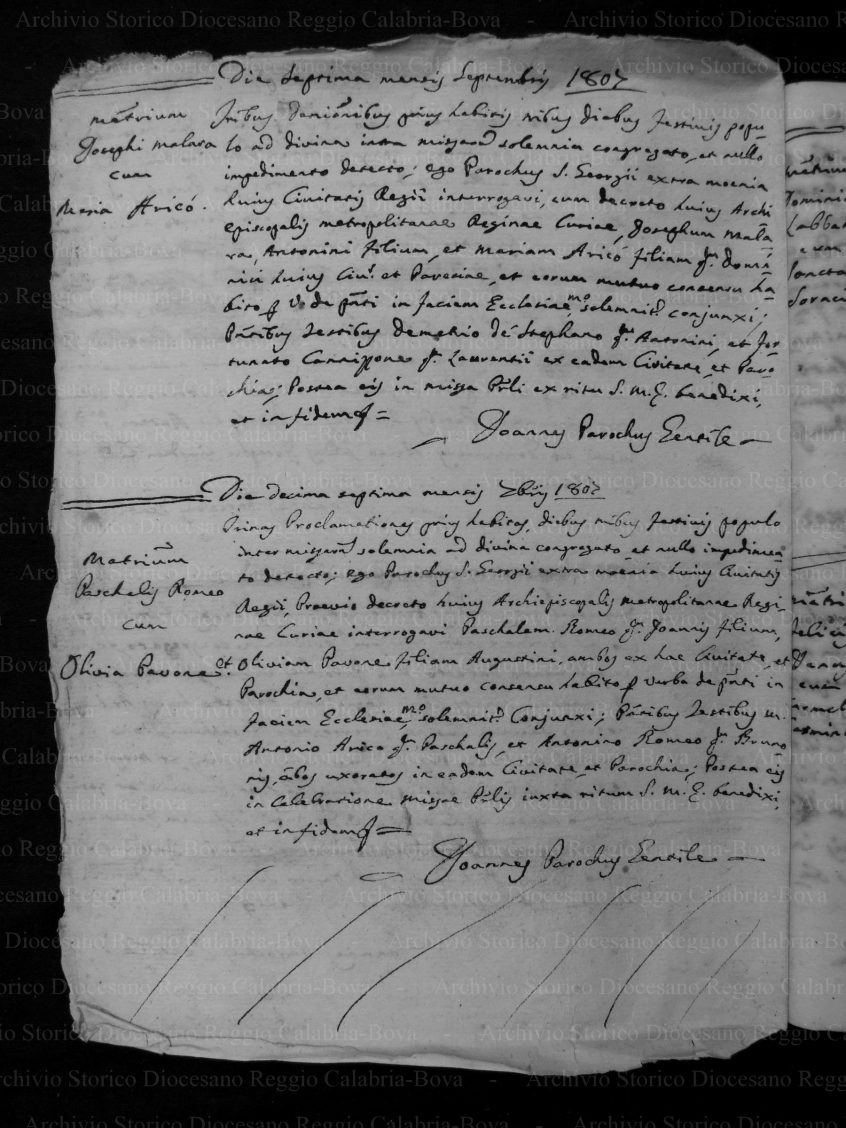 Die septima mensis Septembris 1807
matrium
Josephi Malara
cum
Maria Aricó.
Tribus Denionibus prius habitis tribus diebus festivis popu
lo ad divina intra missarum solemnia congregato, et nullo
impedimento detecto; ego Parochus S. Georgii extra moenia
huius Civitatis Regii interrogavi, cum decreto huius Archi
episcopalis metropolitanae Reginae Curiae, Josephum Mala
ra, Antonini filium, et Mariam Aricó filiam qm. Domi
nici huius Civi. et Pareciae, et eorum mutuo consensu ha
bito p V. de pnti in faciem Ecclesiae mo solemnit. conjunxi;
Pntibus testibus Demetrio de Stephano qm. Antonini, et For
tunato Cannizzone qm. Laurentii ex eadem Civitate, et Paro
chia; Postea eis in missa Pnli ex ritu S. M. E. benedixi,
et in fidem =
Joannes Parochus Gentile
Die decima septima mensis 7bris 1807
Matrium
Paschalis Romeo
cum
Olivia Pavone
Trinas Proclamationes prius habitas, diebus tribus festivis populo
inter missarum solemnia ad divina congregato, et nullo impedimen
to detecto; ego Parochus S. Georgii extra moenia huius Civitatis
Regii, Praevio decreto huius Archiepiscopalis metropolitanae Regi
nae Curiae interrogavi Paschalem Romeo qm. Joannis filium,
et Oliviam Pavone filiam Augustini, ambos ex hac Civitate, et
Parochia, et eorum mutuo consensu habito p verba de pnti in
faciem Ecclesiae mo solemnit. Conjunxi; Pntibus Testibus M.
Antonio Arico qm. Paschalis, et Antonino Romeo qm. Bruno
nis, ambos uxoratos in eadem Civitate, et Parochia; Postea eis
in Celebratione missae Pnlis iuxta ritum S. M. E. benedixi,
et in fidem =
Joannes Parochus Gentile